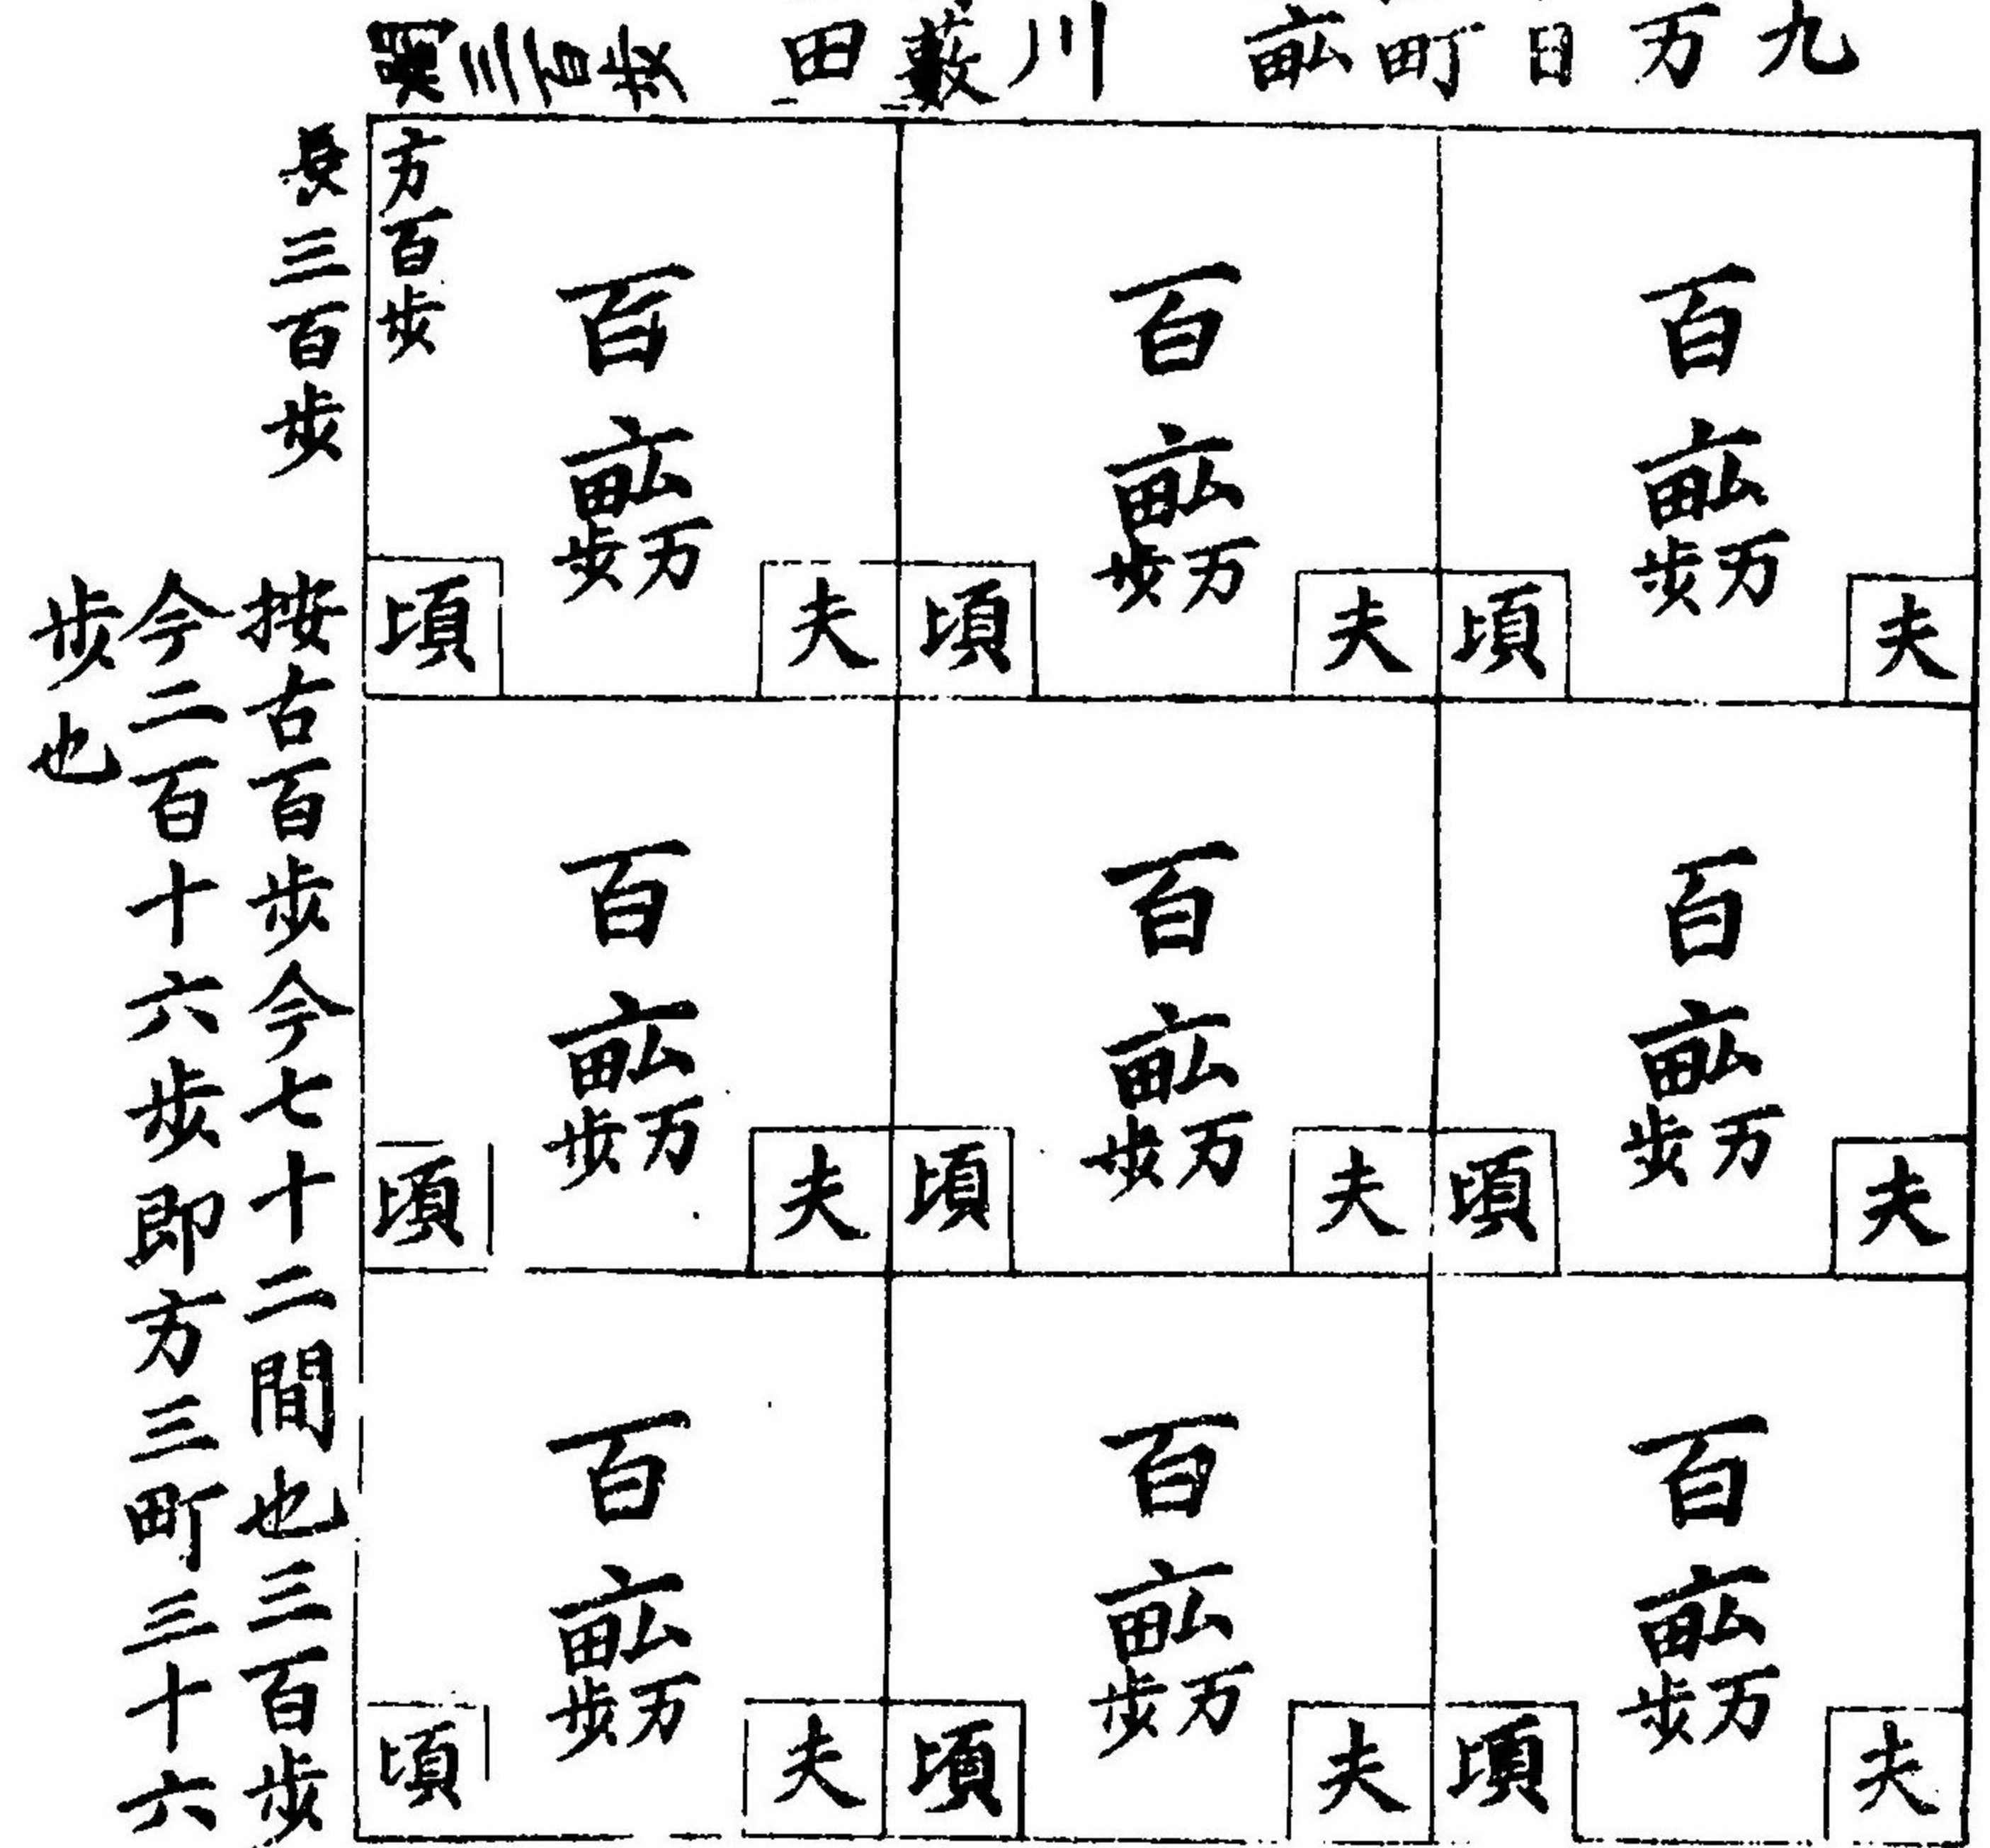 九万日町畆
川藪田
方百歩
長三百歩
百畆万歩 夫 頃
百畆万歩 夫 頃
百畆万歩 夫 頃
百畆万歩 夫 頃
百畆万歩 夫 頃
百畆万歩 夫 頃
百畆万歩 夫 頃
百畆万歩 夫 頃
百畆万歩 夫 頃
按古百歩今七十二間也三百歩
今二百十六歩即方三町三十六
歩也